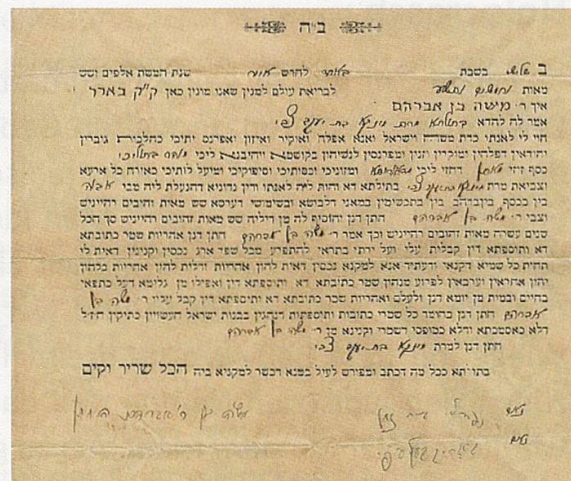 ב״ה
ב שלישי בשבת באחד לחדש אייר שנת חמשת אלפים ושש
מאות וחמשים ותשע לבריאת עולם למנין שאנו מונין כאן ק״ק בארר
איך ר׳ משה בן אברהם
אמר לה להדא בתולתא מרת בת יעקב צבי
הוי לי לאנתו כדת משה וישראל ואנא אפלח ואוקיר ואיזון ואפרנס יתיכי כהלכות גוברין
יהודאין דפלחין ומוקרין וזנין ומפרנסין לנשיהון בקושטא ויהיבנא ליכי מהר בתוליכי
כסף זוזי מאתן דחזי ליכי ומזוניכי וכסותיכי וסיפוקיכי ומיעל לותיכי כאורח כל ארעא
וצביאת מרת בת יעקב צבי בתולתא דא והות ליה לאנתו ודין נדוניא דהנעלת ליה מבי אבוה
בין בכסף בין בדהב בין בתכשיטין במאני דלבושא ובשימושי דערסא שש מאות זהובים הייניש
וצבי ר׳ משה בן אברהם חתן דנן והוסיף לה מן דיליה שש מאות זהובים הייניש סך הכל
שנים עשרה מאות זהובים הייניש וכך אמר ר׳ משה בן אברהם חתן דנן אחריות שטר כתובתא
דא ותוספתא דין קבלית עלי ועל ירתי בתראי להתפרע מכל שפר ארג נכסין וקנינין דאית לי
תחות כל שמיא דקנאי ודעתיד אנא למקנא נכסין דאית להון אחריות ודלית להון אחריות כלהון
יהון אחראין וערבאין לפרוע מנהון שטר כתובתא דא ותוספתא דין ואפילו מן גלימא דעל כתפאי
בחיים ובמות מן יומא דנן ולעלם ואחריות שטר כתובתא דא ותוספתא דין קבל עליו ר׳ משה בן
אברהם חתן דנן כחומר כל שטרי כתובות ותוספתות דנהגין בבנות ישראל העשויין כתיקון חז״ל
דלא כאסמכתא ודלא כטופסי דשטרי וקנינא מן ר׳ משה בן אברהם
חתן דנן למרת בת יעקב צבי
בתולתא בכל מה דכתב ומפורש לעיל במנא דכשר למקניא ביה הכל שריר וקים
משה בן ר׳ נאום
נאום